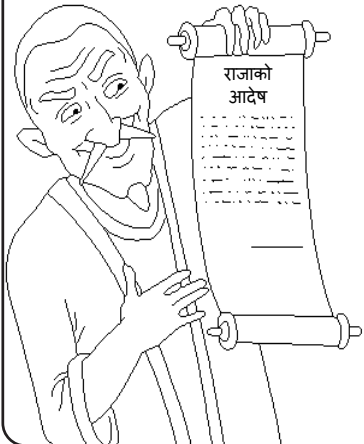 राजाको
आदेष